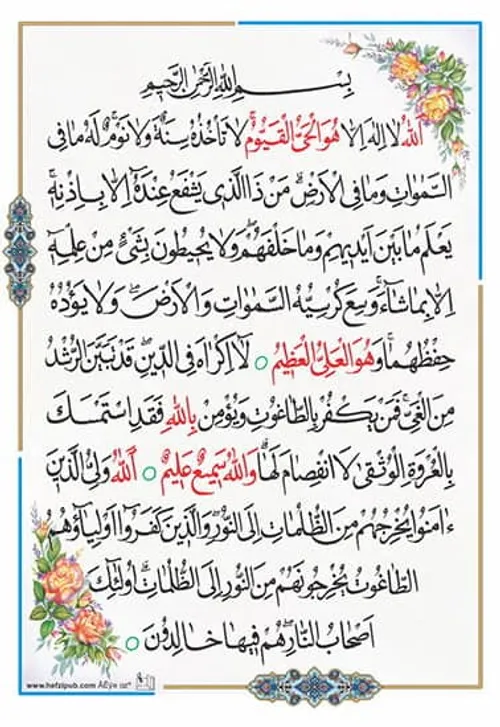 بِسْمِ اللهِ الرَّحْمٰنِ الرَّحِیمِ
اَللهُ لا اِلٰهَ اِلّا هُوَ الْحَیُّ الْقَیُّومُ لا تَأْخُذُهُ سِنَةٌ وَلا نَوْمٌ لَهُ ما فِی
السَّمٰواتِ وَما فِی الْاَرْضِ مَنْ ذَا الَّذی یَشْفَعُ عِنْدَهُ اِلّا بِاِذْنِهِ
یَعْلَمُ ما بَیْنَ اَیْدیهِمْ وَما خَلْفَهُمْ وَلا یُحیطُونَ بِشَیْءٍ مِنْ عِلْمِهِ
اِلّا بِما شاءَ وَسِعَ کُرْسِیُّهُ السَّمٰواتِ وَالْاَرْضَ وَلا یَؤُدُهُ
حِفْظُهُما وَهُوَ الْعَلِیُّ الْعَظیمُ لا اِکْراهَ فِی الدّینِ قَدْ تَبَیَّنَ الرُّشْدُ
مِنَ الْغَیِّ فَمَنْ یَکْفُرْ بِالطّاغُوتِ وَیُؤْمِنْ بِاللهِ فَقَدِ اسْتَمْسَکَ
بِالْعُرْوَةِ الْوُثْقیٰ لَا انْفِصامَ لَها وَاللهُ سَمیعٌ عَلیمٌ اَللهُ وَلِیُّ الَّذینَ
ءامَنُوا یُخْرِجُهُمْ مِنَ الظُّلُماتِ اِلَی النُّورِ وَالَّذینَ کَفَرُوا اَوْلِیاؤُهُمُ
الطّاغُوتُ یُخْرِجُونَهُمْ مِنَ النُّورِ اِلَی الظُّلُماتِ اُولٰئِکَ
اَصْحابُ النّارِ هُمْ فیها خالِدُونَ
www.hefzipub.com